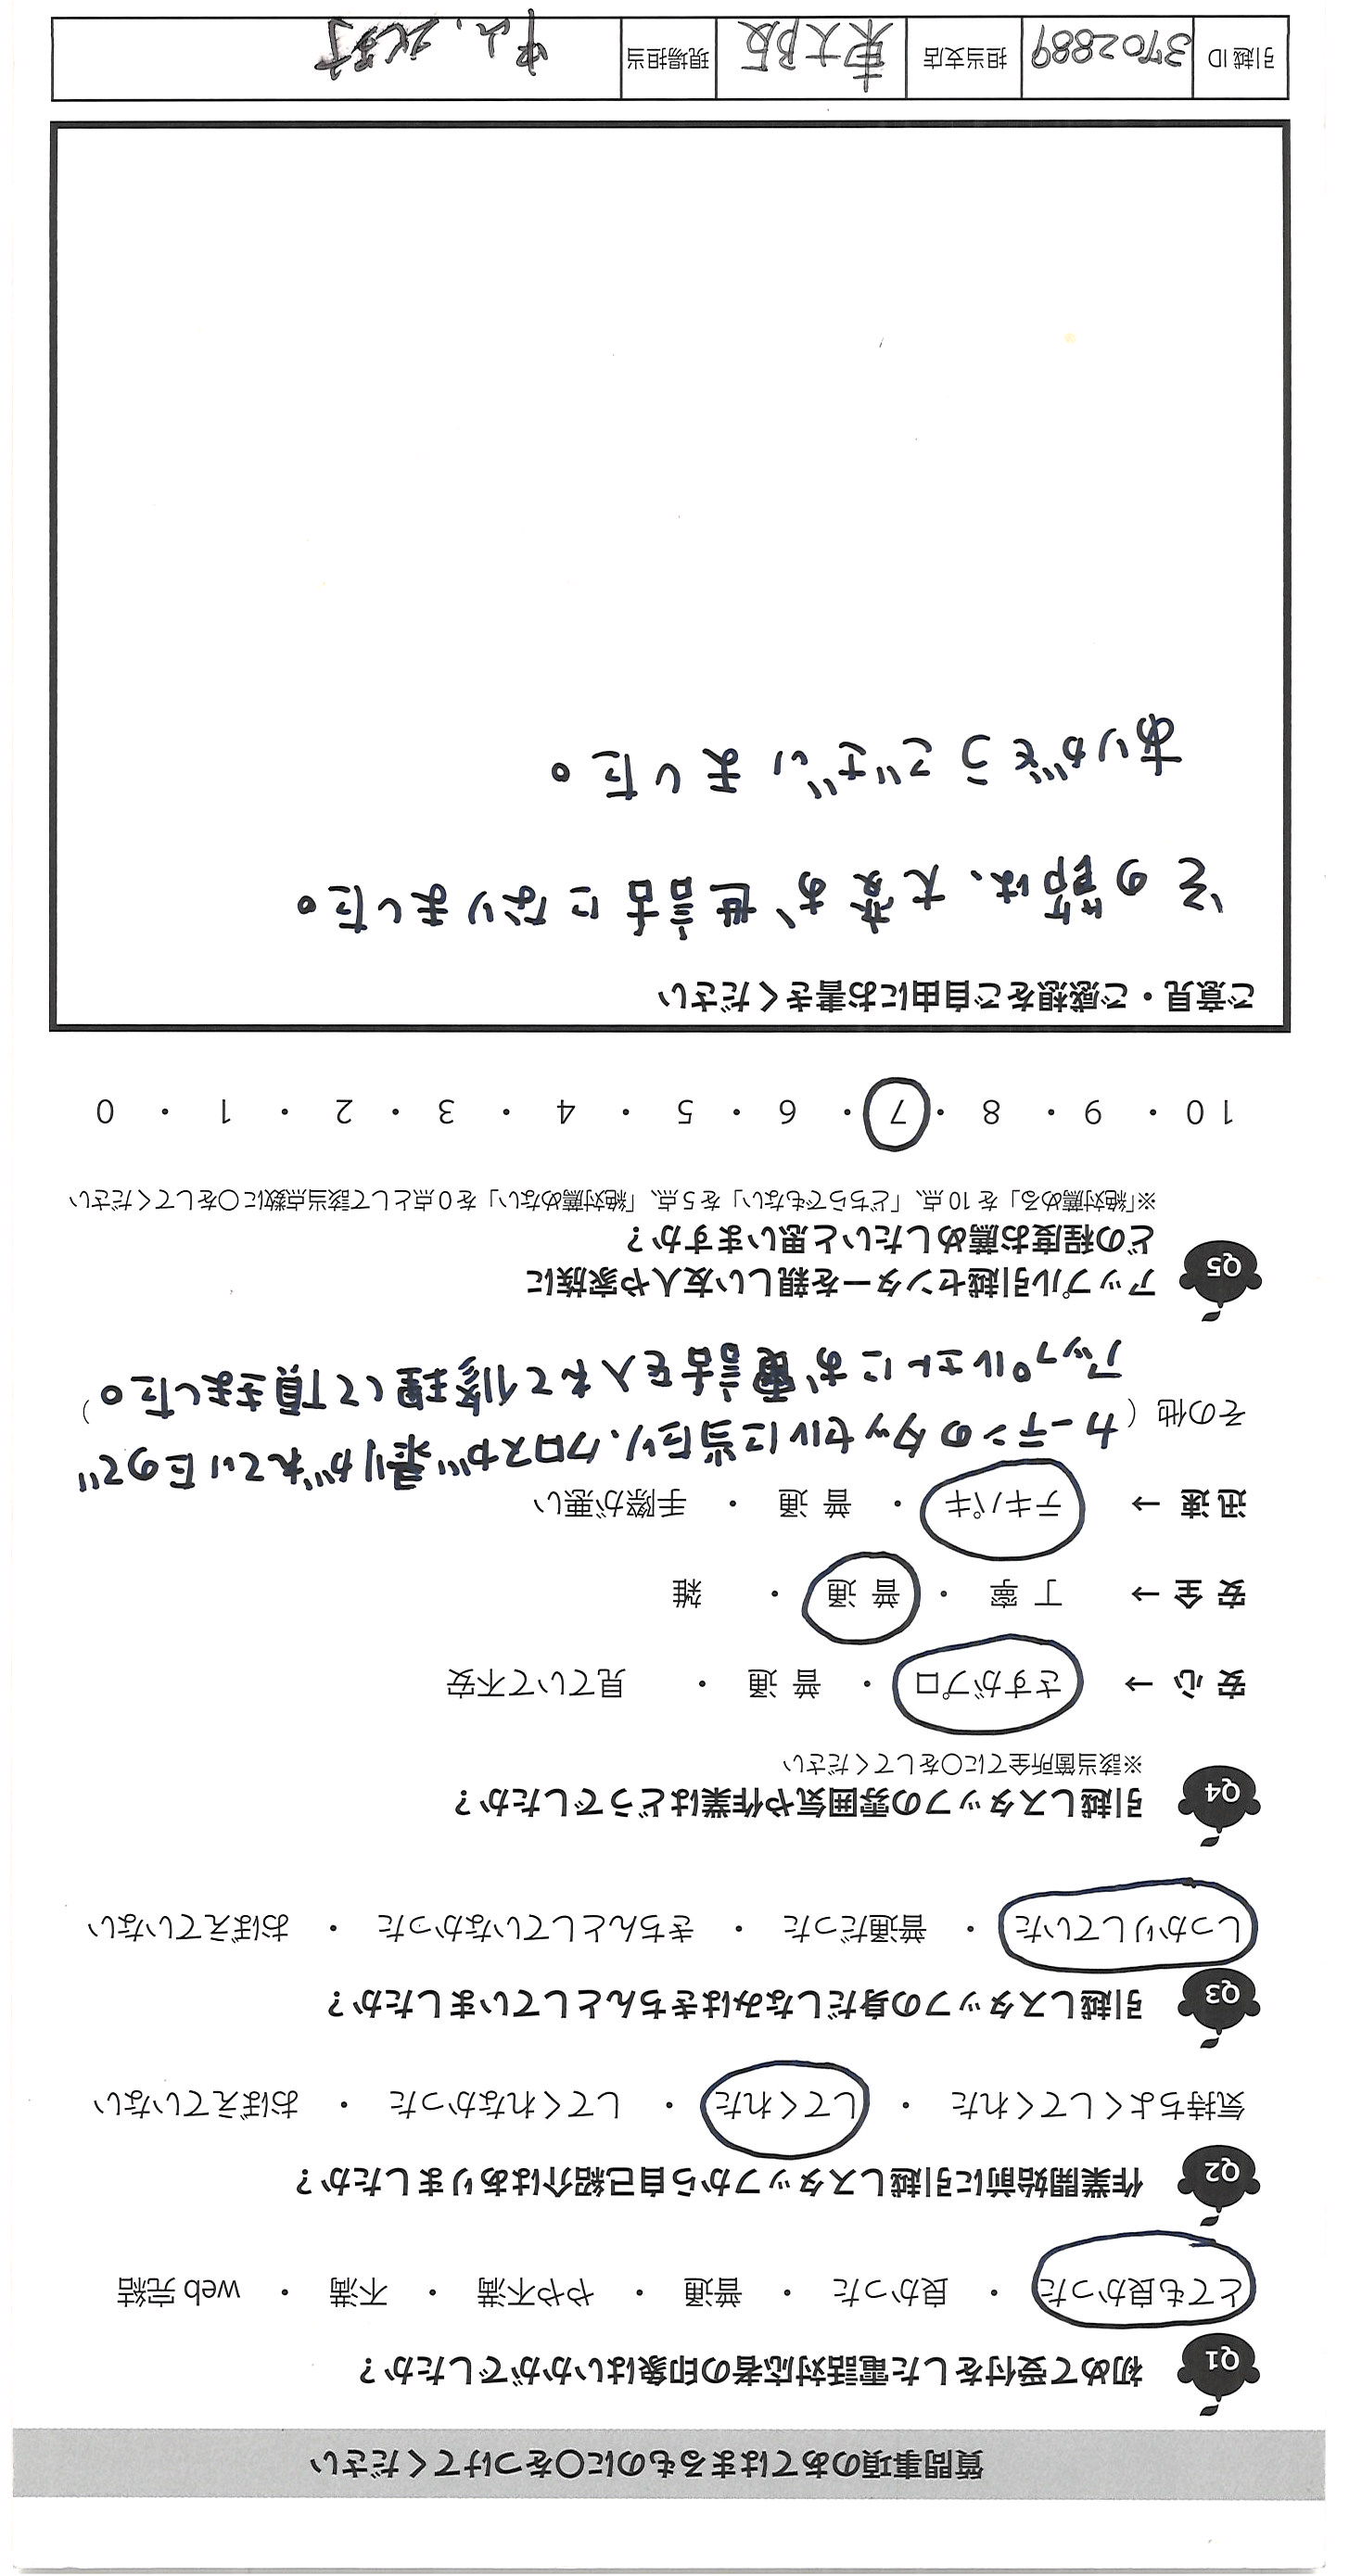 質問事項のあてはまるものに〇をつけてください
Q1 初めて受付をした電話対応者の印象はいかがでしたか？
とても良かった ・ 良かった ・ 普通 ・ やや不満 ・ 不満 ・ web 完結
Q2 作業開始前に引越しスタッフから自己紹介はありましたか？
気持ちよくしてくれた ・ してくれた ・ してくれなかった ・ おぼえていない
Q3 引越しスタッフの身だしなみはきちんとしていましたか？
しっかりしていた ・ 普通だった ・ きちんとしていなかった ・ おぼえていない
Q4 引越しスタッフの雰囲気や作業はどうでしたか？
※該当箇所全てに〇をしてください
安 心 → さすがプロ ・ 普 通 ・ 見ていて不安
安 全 → 丁 寧 ・ 普 通 ・ 雑
迅 速 → テキパキ ・ 普 通 ・ 手際が悪い
その他 ( カーテンのタッセルに当たり、クロスが剥がれていたので
アップルさんにお電話を入れて修理して頂きました。 )
Q5 アップル引越センターを親しい友人や家族に
どの程度お薦めしたいと思いますか？
※「絶対薦める」を 10 点、「どちらでもない」を 5 点、「絶対薦めない」を 0 点として該当点数に〇をしてください
10 ・ 9 ・ 8 ・ 7 ・ 6 ・ 5 ・ 4 ・ 3 ・ 2 ・ 1 ・ 0
ご意見・ご感想をご自由にお書きください
その節は、大変お世話になりました。
ありがとうございました。
引越 ID 3702889 担当支店 東大阪 現場担当 中山、北野